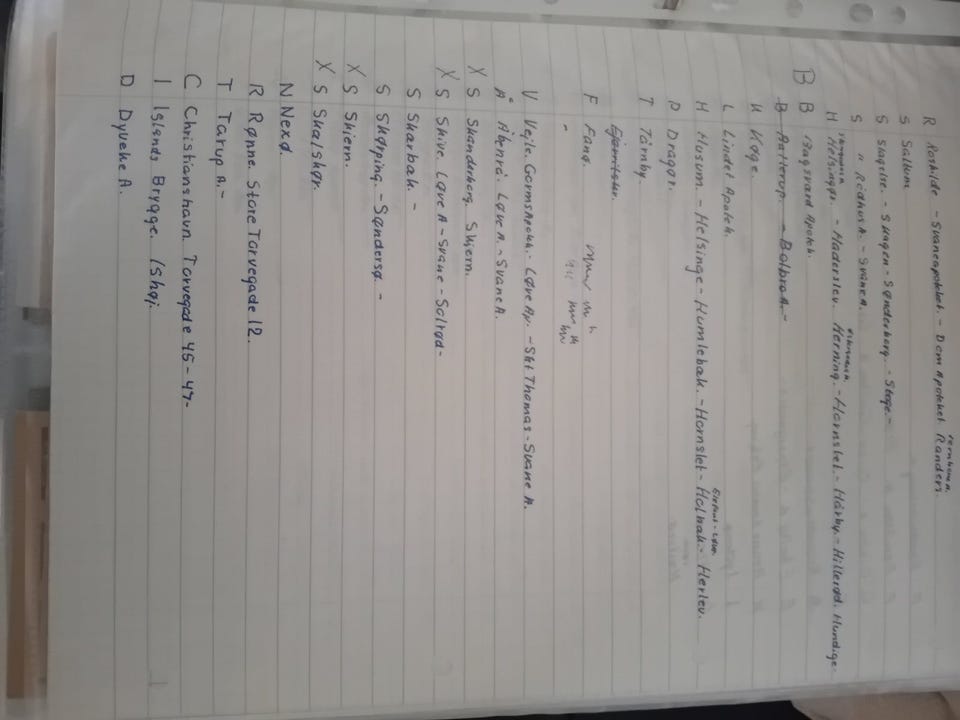 Jernbane A.
R Roskilde - Svaneapoteket. - Dom Apoteket Randers
S Sallum
S Slagelse - Skagen - Sønderborg - Stege. -
S " Rådhus A. - Svane A.
H Helsingør. - Haderslev. Herning. - Hornslet. - Hårby. - Hillerød. Hundige.
B B Bagsværd Apotek.
B Ballerup. - Bolbro A. -
K Køge.
L Lindet Apotek.
Elefant - Løve.
H Husum - Helsinge - Humlebæk. - Hornslet - Holbæk. - Herlev.
D Dragør.
T Tårnby.
Ejerritslev.
F Fanø.
V Vejle. Gorms Apotek. - Løve Ap. - Skt Thomas - Svane A.
Å Åbenrå. Løve A. - Svane A.
X S Skanderborg. Skjern.
X S Skive. Løve A - Svane - Solrød -
S Skærbæk. -
S Skørping. - Søndersø. -
X S Skjern.
X S Skælskør.
N Nexø.
R Rønne. Store Torvegade 12.
T Tarup A. -
C Christianshavn Torvegade 45-47-
I Islands Brygge. Ishøj.
D Dyveke A.